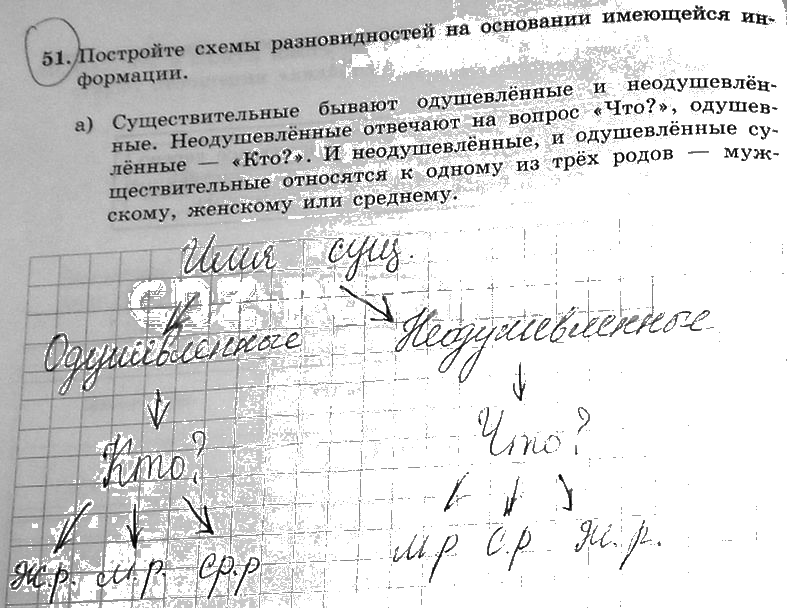 51. Постройте схемы разновидностей на основании имеющейся ин-
формации.
а) Существительные бывают одушевлённые и неодушевлён-
ные. Неодушевлённые отвечают на вопрос «Что?», одушев-
лённые — «Кто?». И неодушевлённые, и одушевлённые су-
ществительные относятся к одному из трёх родов — муж-
скому, женскому или среднему.
Имя сущ.
Одушевленные Неодушевленные
Кто? Что?
ж.р. м.р. ср.р м.р с.р ж.р.